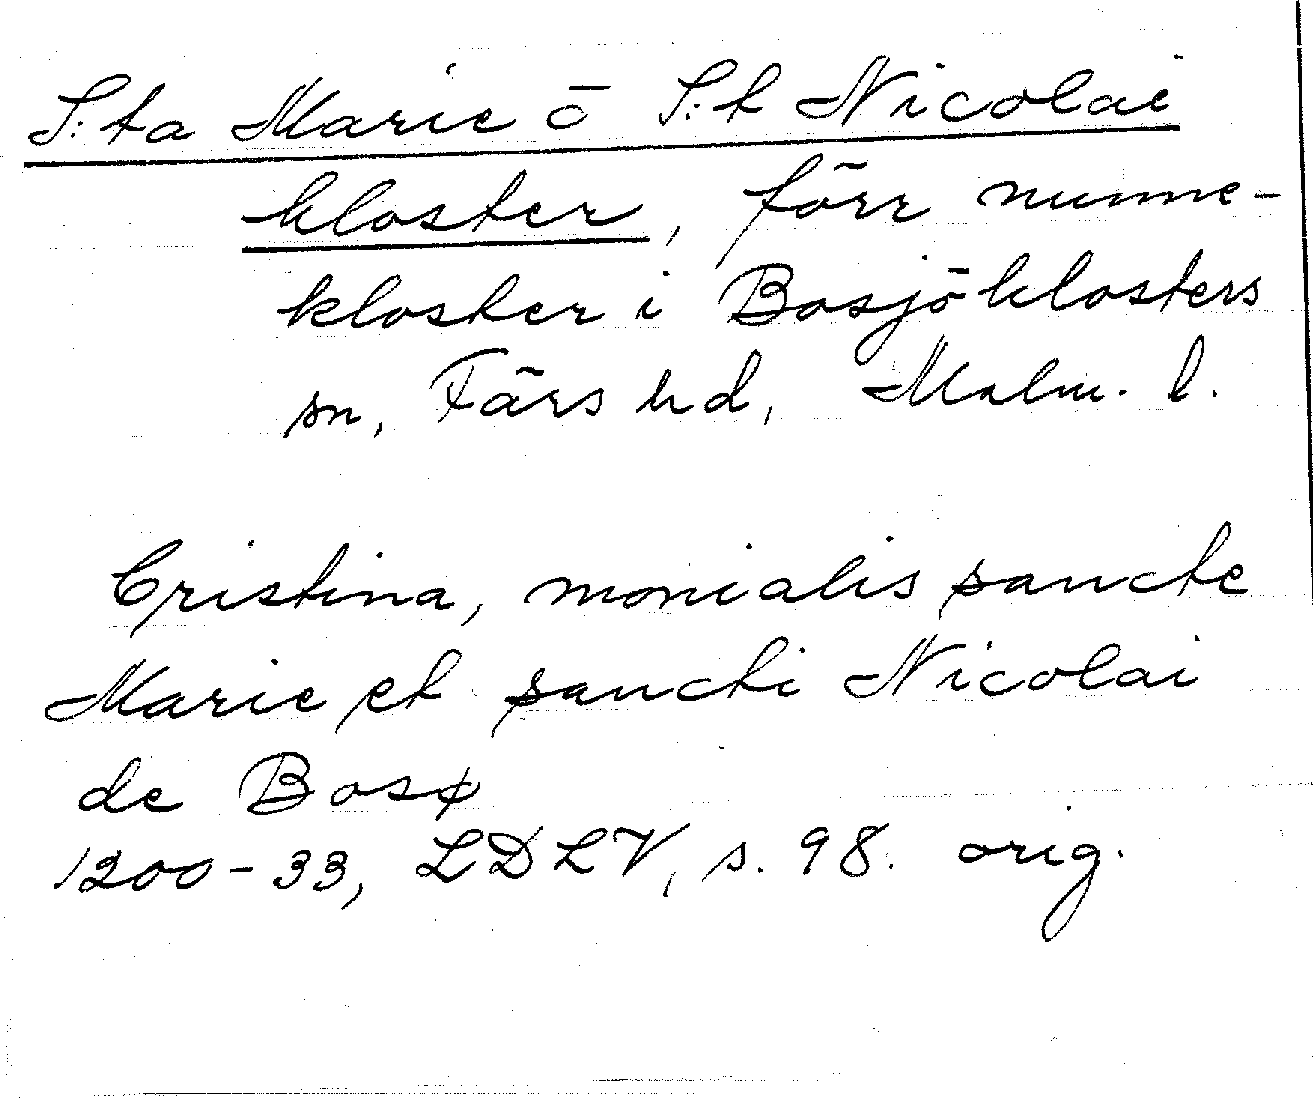 S:ta Marie o S:t Nicolai
kloster, förr nunne-
kloster i Bosjöklosters
sn, Färs hd, Malm. l.
Cristina, monialis sancte
Marie et sancti Nicolai
de Bosø
1200-33, LDLV, s. 98. orig.